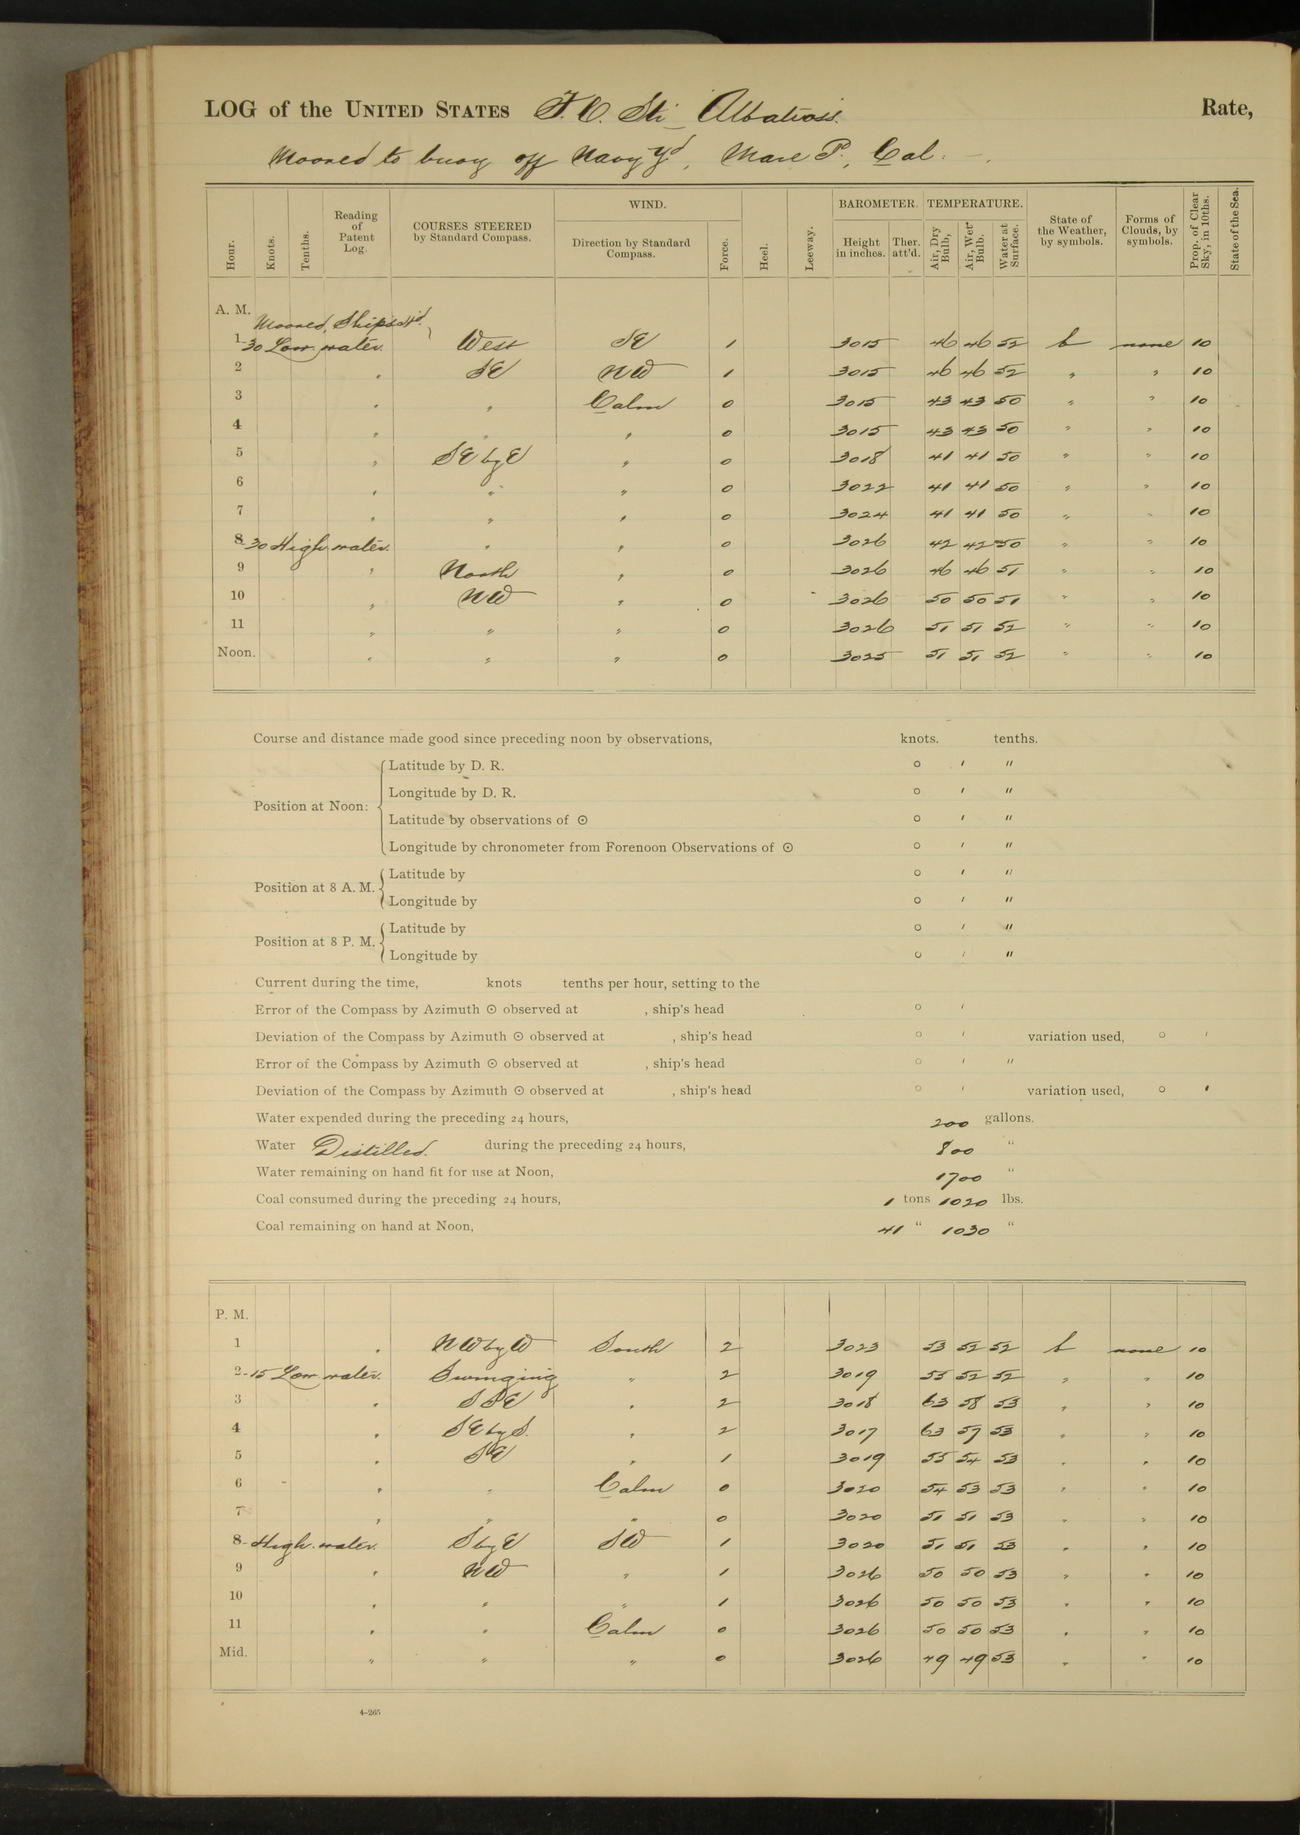 LOG of the UNITED STATES F. C. St. Albatross. Rate,
Moored to buoy off Navy Yd, Mare I., Cal.
Hour. Knots. Tenths. Reading of Patent Log. COURSES STEERED by Standard Compass. WIND. Direction by Standard Compass. Force. Heel. Leeway. BAROMETER. Height in inches. Ther. att'd. TEMPERATURE. Air, Dry Bulb. Air, Wet Bulb. Water at Surface. State of the Weather, by symbols. Forms of Clouds, by symbols. Prop. of Clear Sky, in 10ths. State of the Sea.
A. M.
Moored, Ships
1-30 Low water. West SE 1 3015 46 46 52 b none 10
2 " SE NW 1 3015 46 46 52 " " 10
3 " " Calm 0 3015 43 43 50 " " 10
4 " " " 0 3015 43 43 50 " " 10
5 " SE by E " 0 3018 41 41 50 " " 10
6 " " " 0 3022 41 41 50 " " 10
7 " " " 0 3024 41 41 50 " " 10
8-30 High water. " " 0 3026 42 42 50 " " 10
9 " North " 0 3026 46 46 51 " " 10
10 " NW " 0 3026 50 50 51 " " 10
11 " " " 0 3026 51 51 52 " " 10
Noon. " " " 0 3025 51 51 52 " " 10
Course and distance made good since preceding noon by observations, knots. tenths.
Position at Noon: Latitude by D. R. ° ′ ″
Longitude by D. R. ° ′ ″
Latitude by observations of ☉ ° ′ ″
Longitude by chronometer from Forenoon Observations of ☉ ° ′ ″
Position at 8 A. M. Latitude by ° ′ ″
Longitude by ° ′ ″
Position at 8 P. M. Latitude by ° ′ ″
Longitude by ° ′ ″
Current during the time, knots tenths per hour, setting to the
Error of the Compass by Azimuth ☉ observed at , ship's head ° ′
Deviation of the Compass by Azimuth ☉ observed at , ship's head ° ′ variation used, ° ′
Error of the Compass by Azimuth ☉ observed at , ship's head ° ′ ″
Deviation of the Compass by Azimuth ☉ observed at , ship's head ° ′ variation used, ° ′
Water expended during the preceding 24 hours, 200 gallons.
Water Distilled. during the preceding 24 hours, 800 "
Water remaining on hand fit for use at Noon, 1700 "
Coal consumed during the preceding 24 hours, 1 tons 1020 lbs.
Coal remaining on hand at Noon, 41 " 1030 "
P. M.
1 " NW by W South 2 3023 53 52 52 b none 10
2-15 Low water. Swinging " 2 3019 55 52 52 " " 10
3 " SSE " 2 3018 63 58 53 " " 10
4 " SE by S. " 2 3017 63 57 53 " " 10
5 " SE " 1 3019 55 54 53 " " 10
6 " " Calm 0 3020 54 53 53 " " 10
7 " " " 0 3020 51 51 53 " " 10
8- High water. S by E SW 1 3020 51 51 53 " " 10
9 " NW " 1 3026 50 50 53 " " 10
10 " " " 1 3026 50 50 53 " " 10
11 " " Calm 0 3026 50 50 53 " " 10
Mid. " " " 0 3026 49 49 53 " " 10
4-265